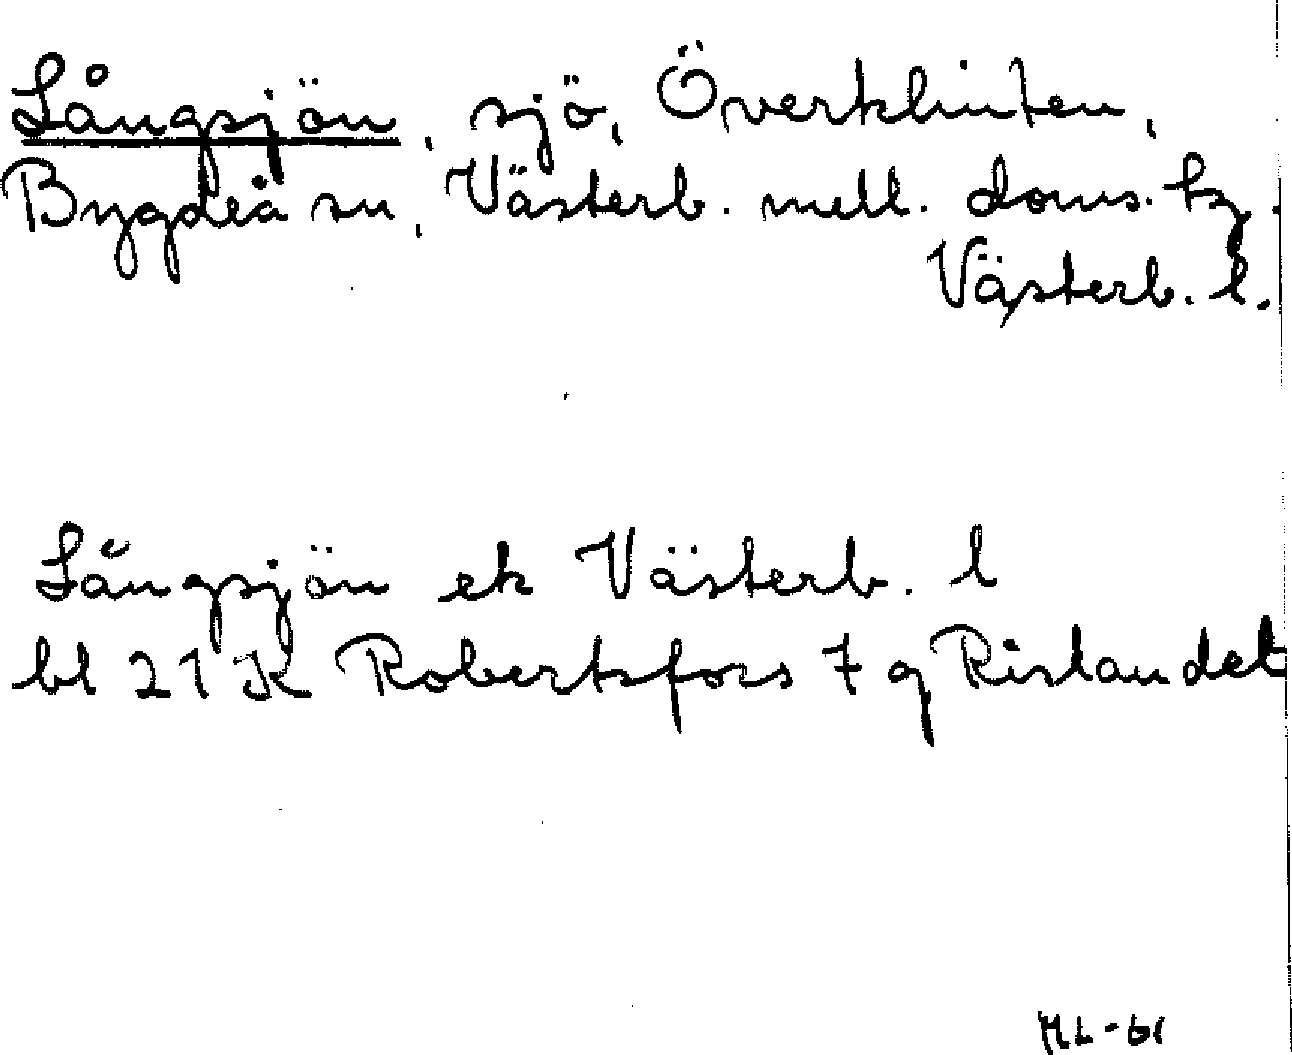 Långsjön, sjö, Överklinten,
Bygdeå sn, Västerb. mell. doms. tg.
Västerb. l.
Långsjön ek Västerb. l
bl 21K Robertsfors 7 g Rislandet
ML-61